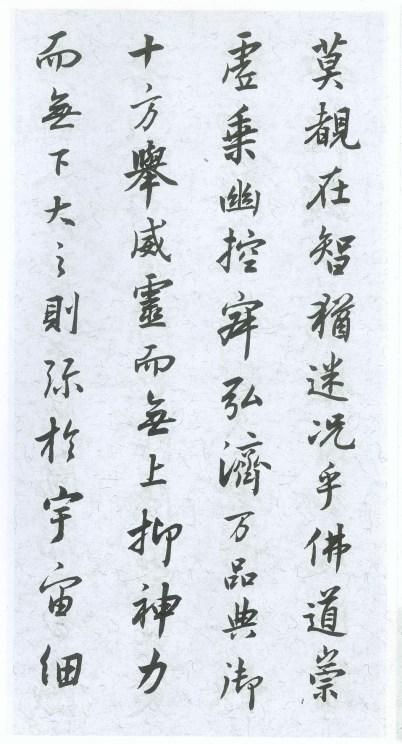 莫覩在智猶迷况乎佛道崇
虚乗幽控寂弘濟万品典御
十方舉威靈而無上抑神力
而無下大之則弥於宇宙細